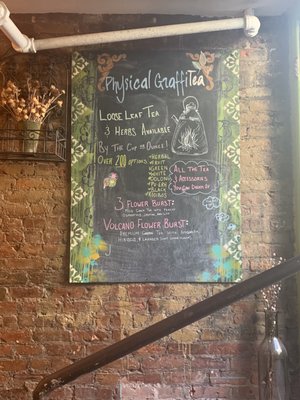 Physical GraffiTea
Loose Leaf Tea
& Herbs Available
By The Cup or Ounce!
Over 200 options
• Herbal
• Fruit
• Green
• White
• Oolong
• Pu Erh
• Black
• Rooibos
All The Tea
& Accessories
You Can Dream Of
3 Flower Burst:
Volcano Flower Burst: